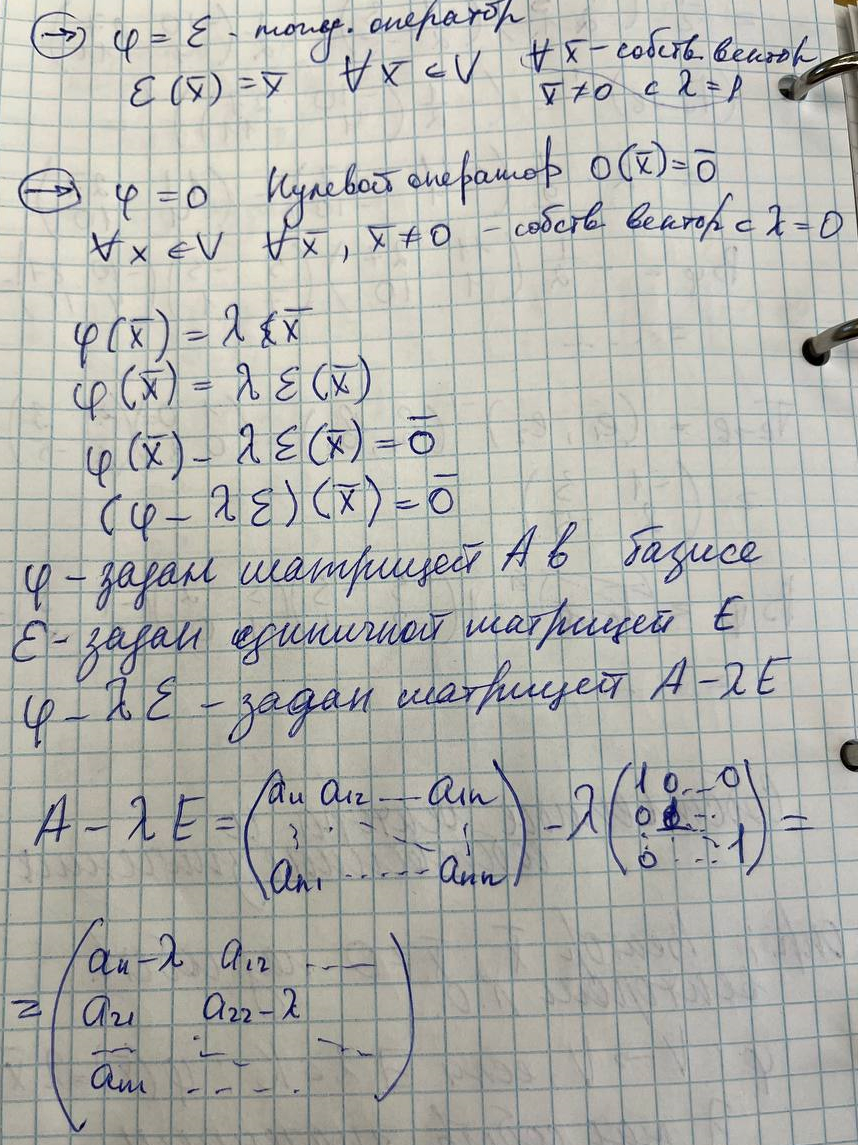 → φ = ε - тожд. оператор
ε(x̄) = x̄ ∀x̄ ∈ V ∀x̄ - собств вектор
x̄ ≠ 0 с λ = 1
→ φ = 0 Нулевой оператор 0(x̄) = 0̄
∀x ∈ V ∀x̄, x̄ ≠ 0 - собств вектор с λ = 0
φ(x̄) = λ x̄
φ(x̄) = λ ε(x̄)
φ(x̄) - λ ε(x̄) = 0̄
(φ - λ ε)(x̄) = 0̄
φ - задан матрицей A в базисе
ε - задан единичной матрицей E
φ - λ ε - задан матрицей A - λE
A - λE = (a11 a12 ... a1n ... an1 ... ann) - λ(1 0 ... 0 0 1 ... 0 ... 1) =
= (a11 - λ a12 ...
a21 a22 - λ
... ... ...
an1 ... )